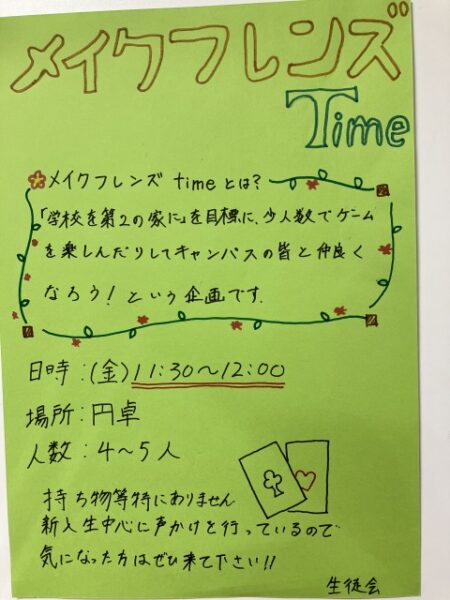 メイクフレンズ
Time
メイクフレンズ timeとは?
「学校を第2の家に」を目標に、少人数でゲーム
を楽しんだりしてキャンパスの皆と仲良く
なろう!という企画です.
日時:(金)11:30〜12:00
場所:円卓
人数:4〜5人
持ち物等特にありません
新入生中心に声かけを行っているので
気になった方はぜひ来て下さい!!
生徒会